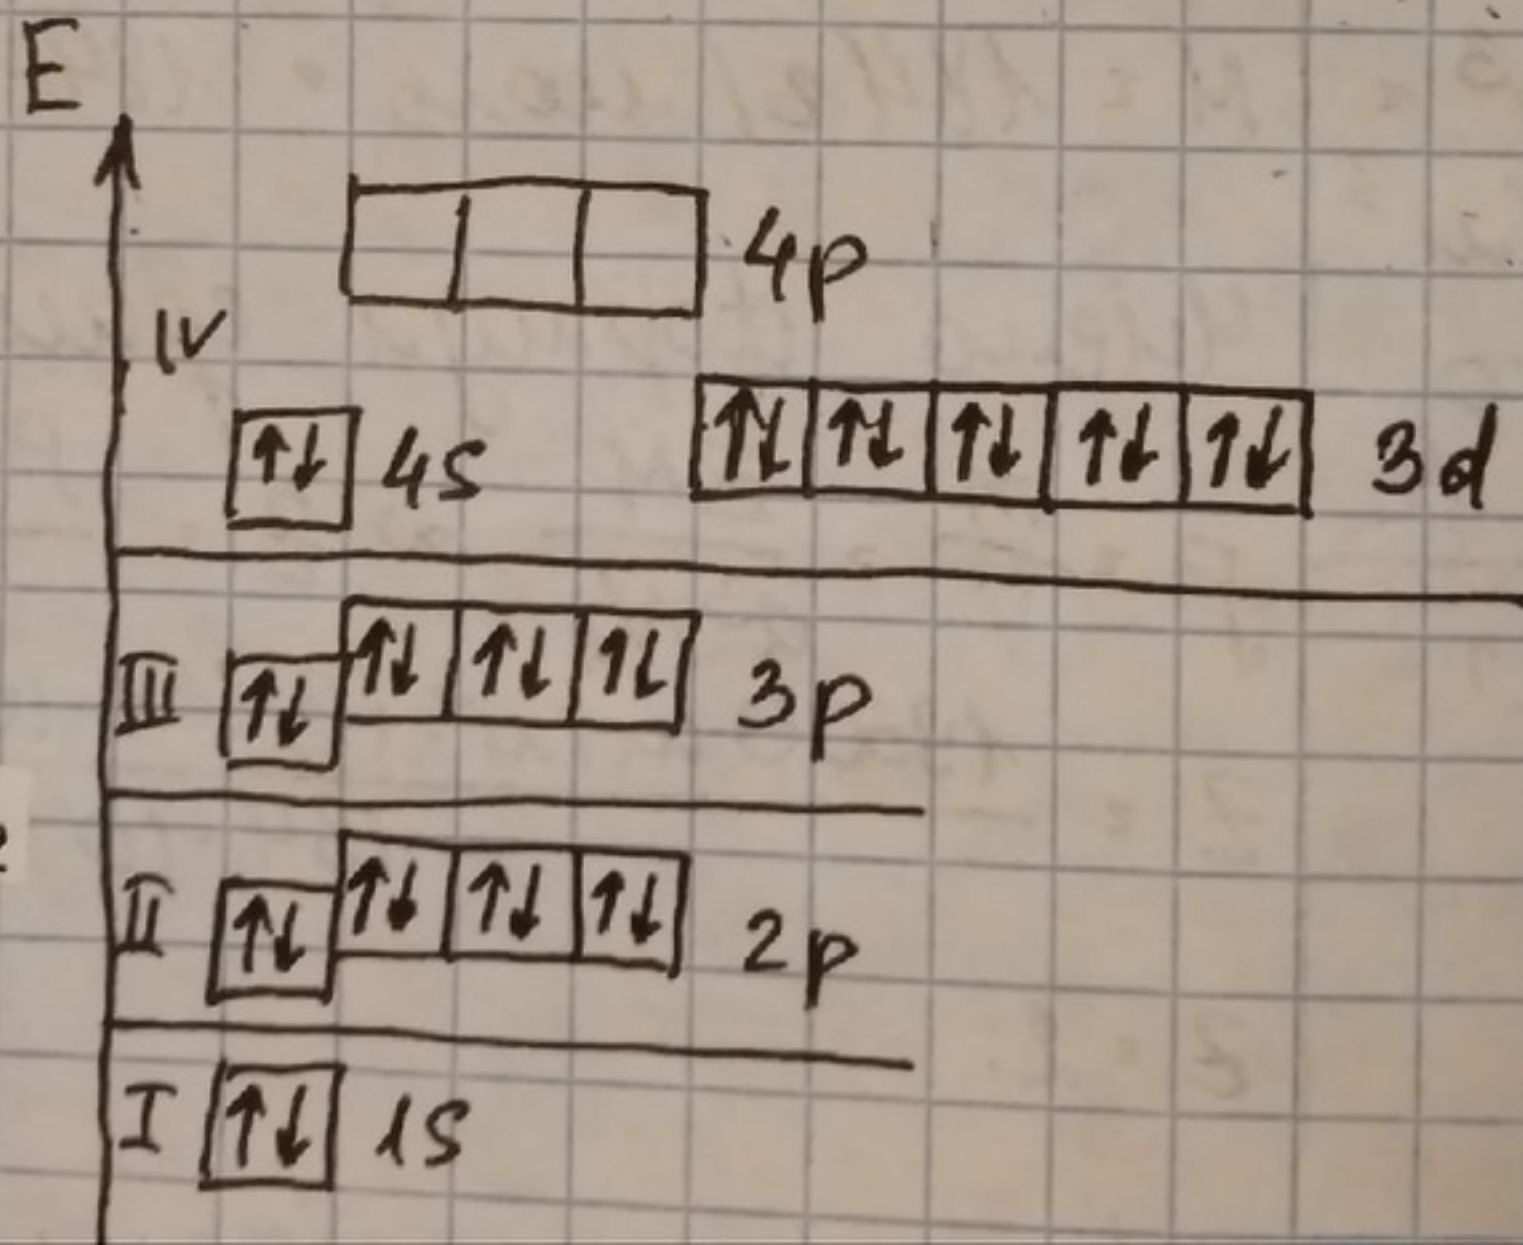 E
4p
IV
↑↓ 4s ↑↓ ↑↓ ↑↓ ↑↓ ↑↓ 3d
III ↑↓ ↑↓ ↑↓ ↑↓ 3p
II ↑↓ ↑↓ ↑↓ ↑↓ 2p
I ↑↓ 1s